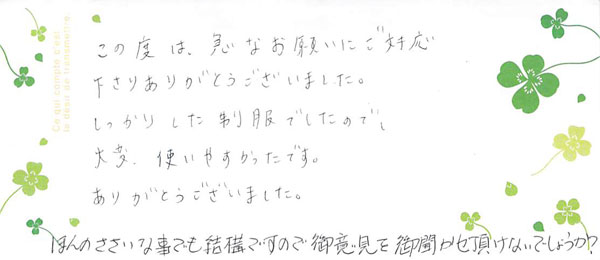 Ce qui compte c'est
le désir de transmettre.
この度は、急なお願いにご対応
下さりありがとうございました。
しっかりした制服でしたので、
大変、使いやすかったです。
ありがとうございました。
ほんのささいな事でも結構ですので御意見を御聞かせ頂けないでしょうか?